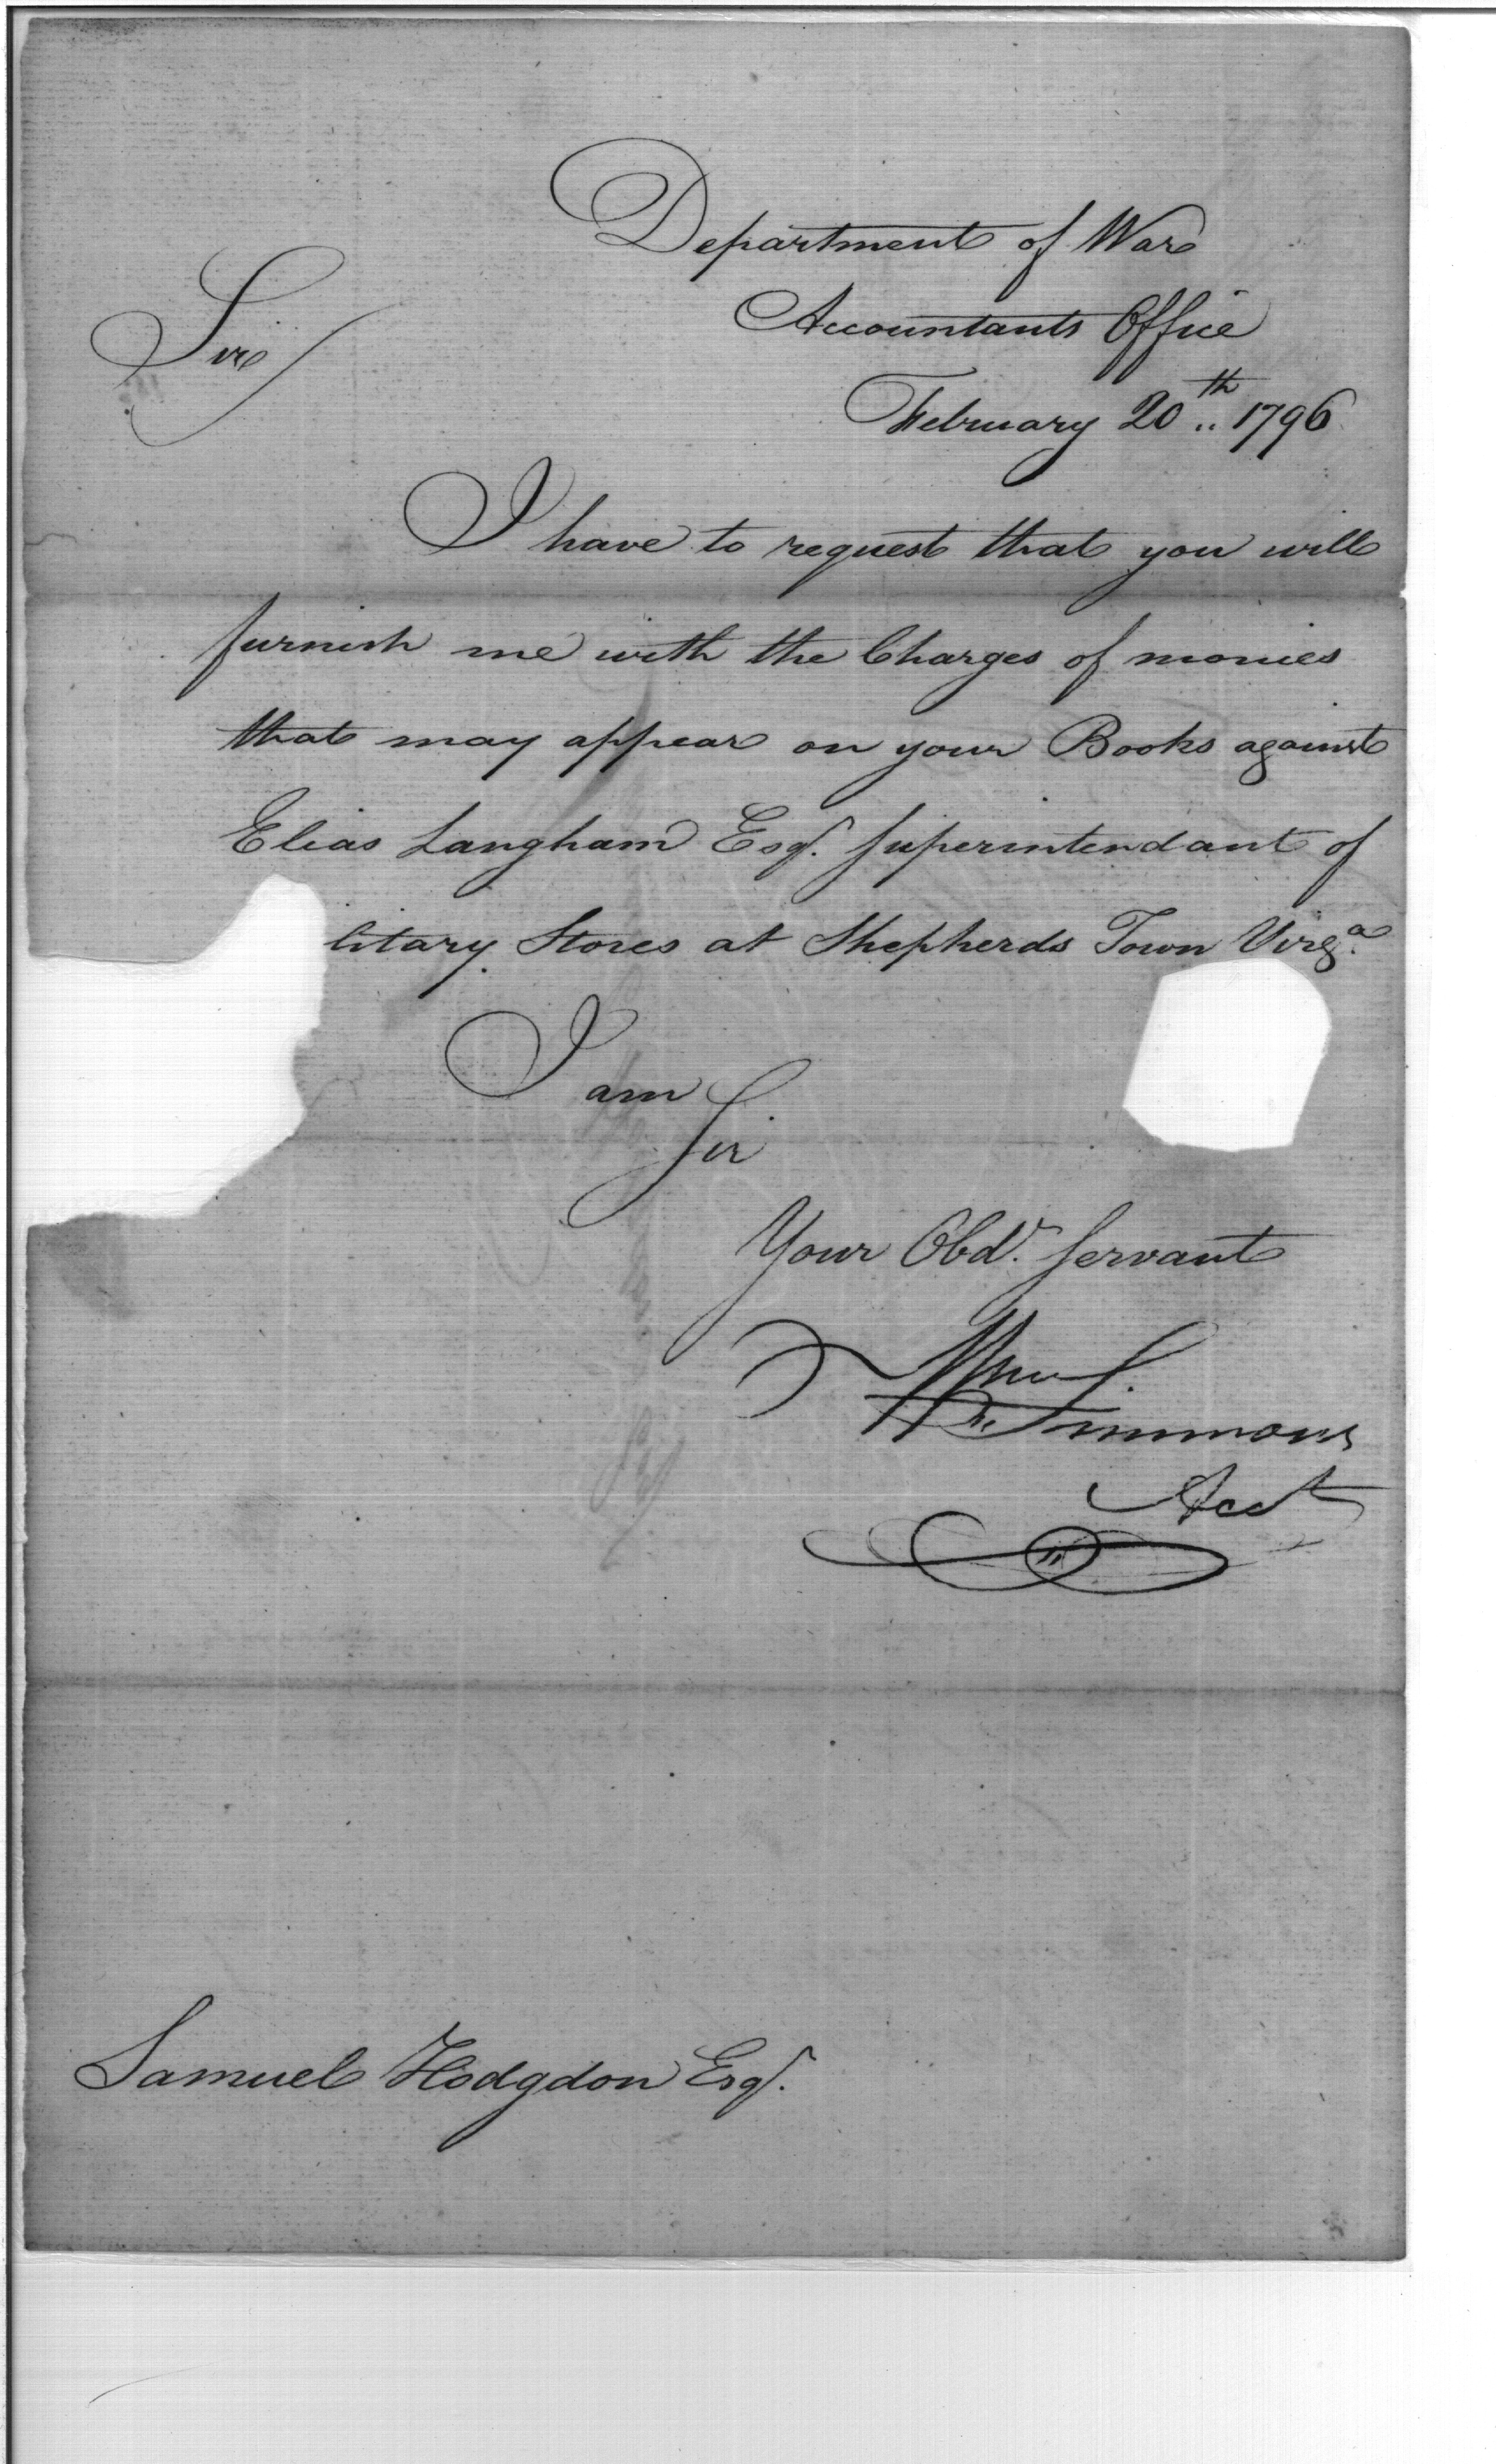 Department of War
Accountants Office
Sir/
February 20th 1796
I have to request that you will
furnish me with the Charges of monies
that may appear on your Books against
Elias Langham Esqr. Superintendant of
litary Stores at Shepherds Town Virga.
I am
Sir
Your Obdt. Servant
Wm Simmons
Acct
Samuel Hodgdon Esqr.